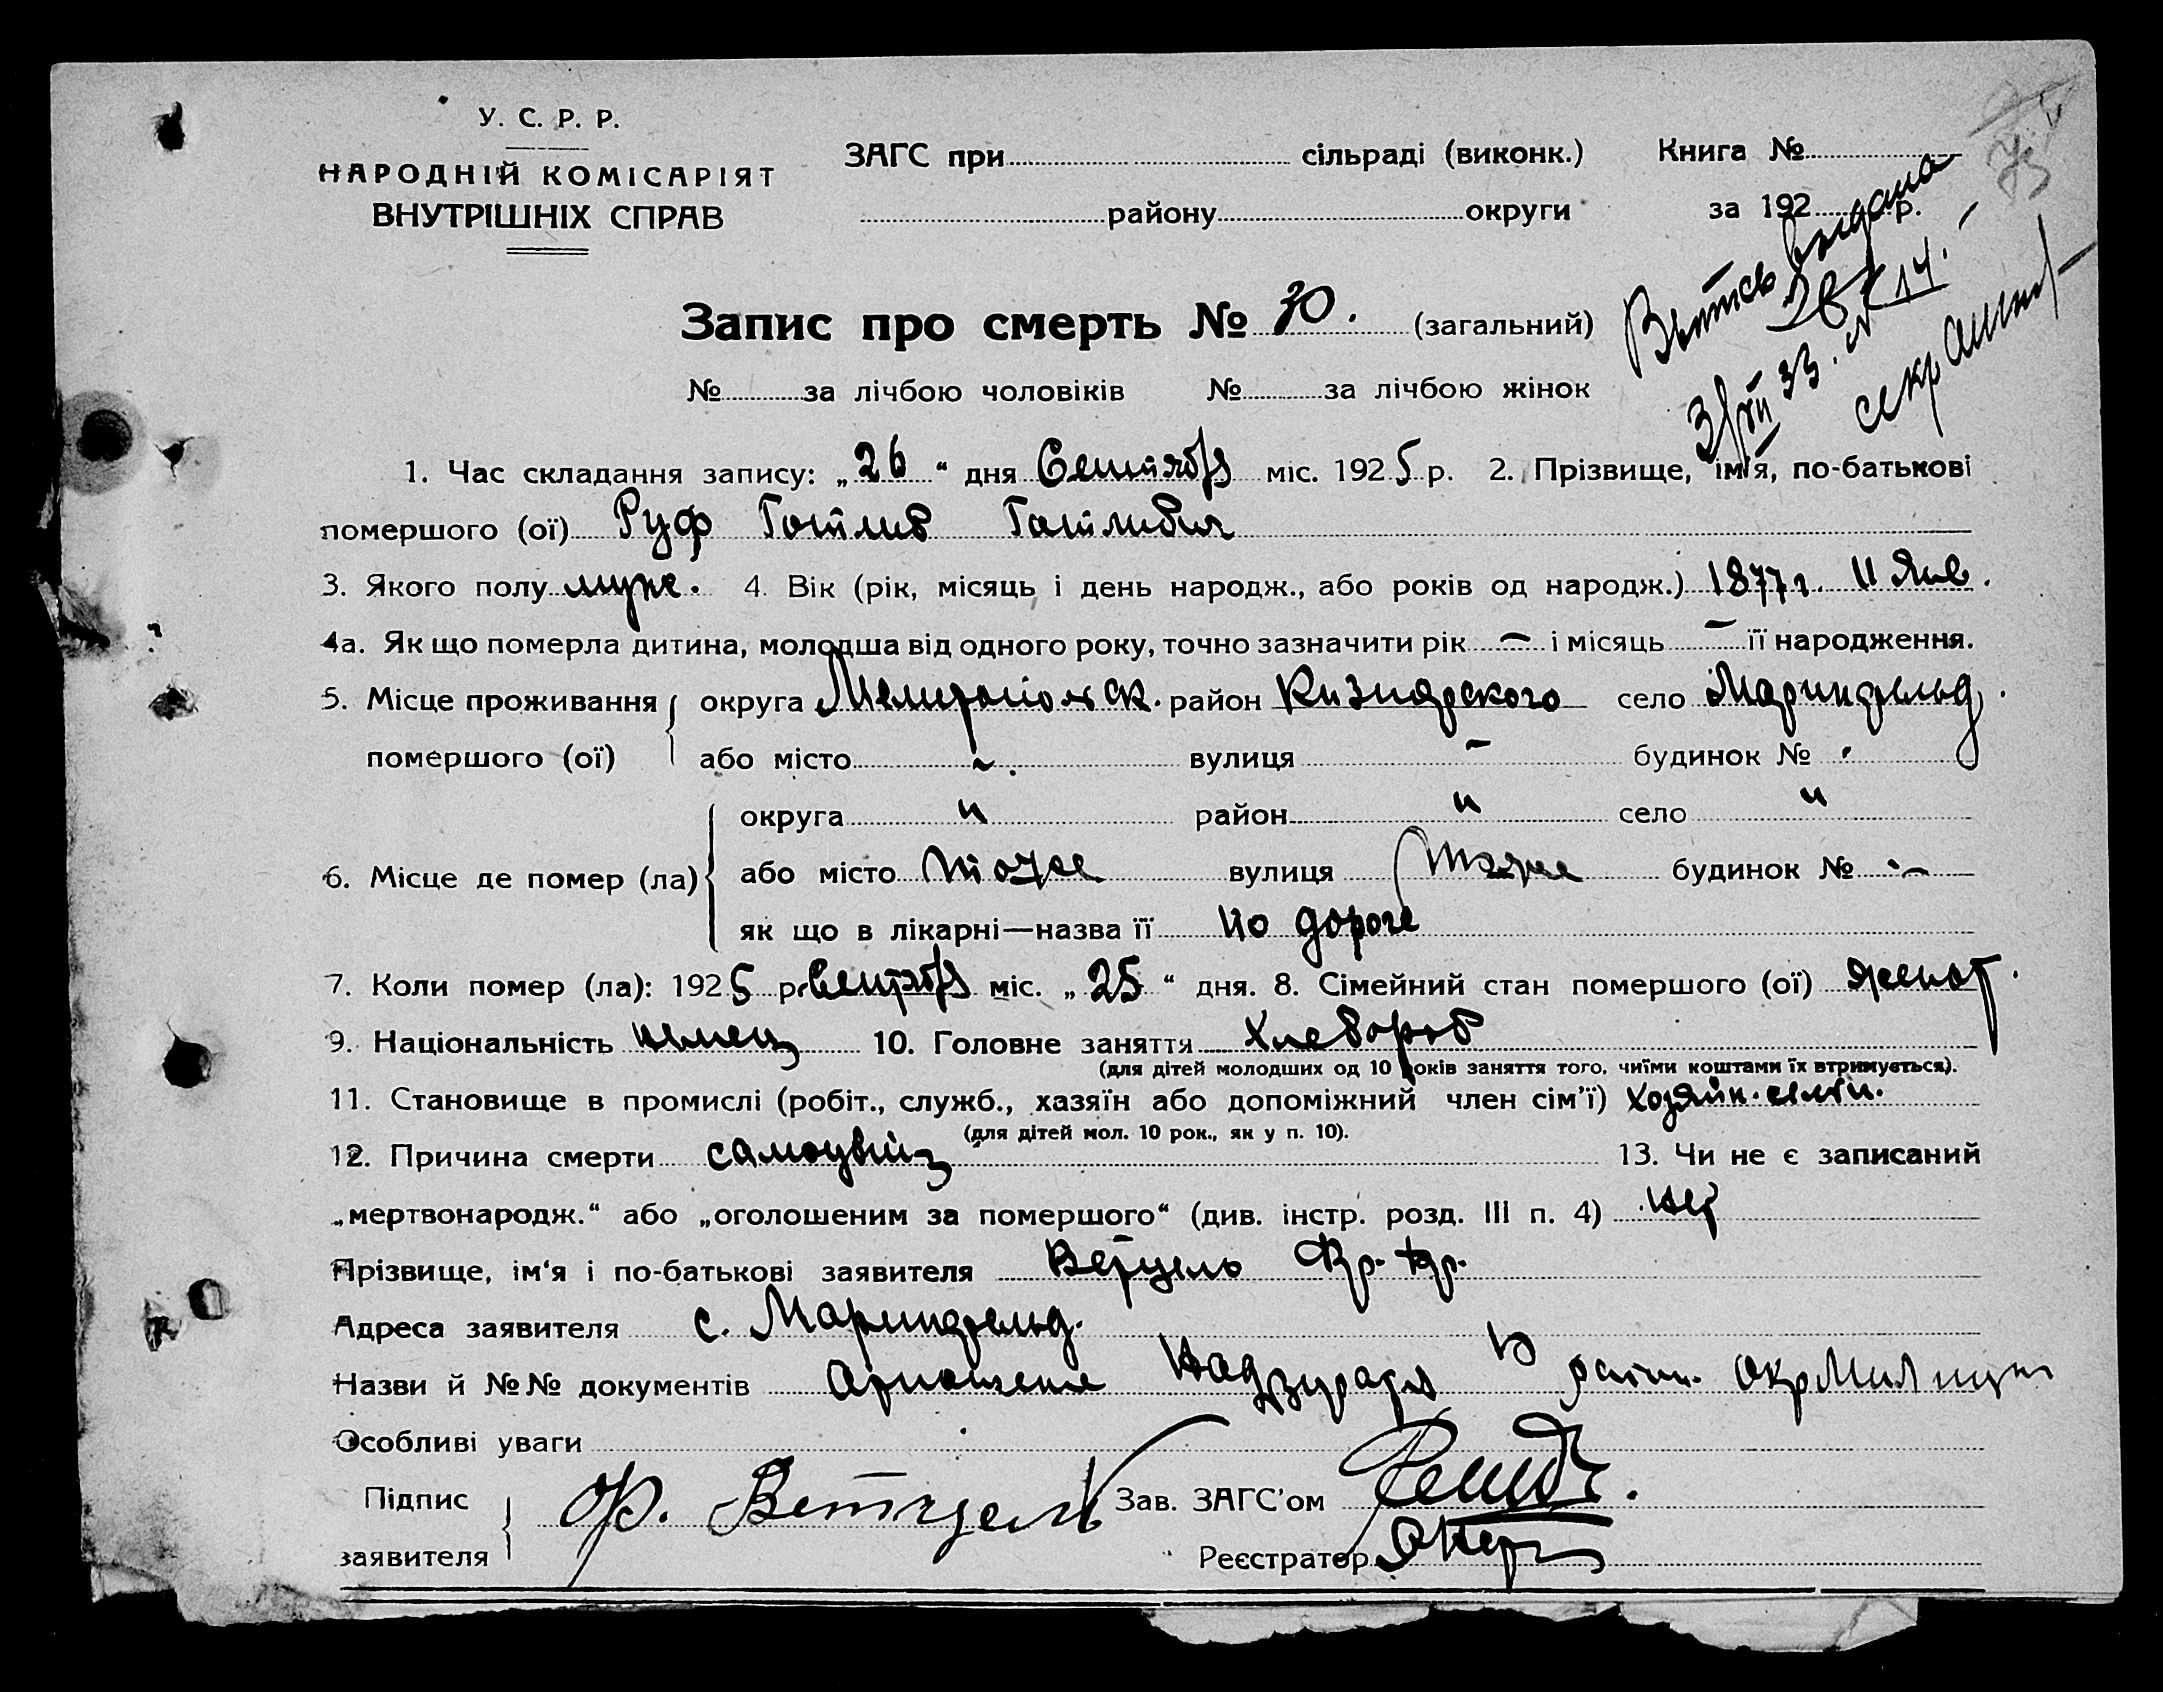 У. С. Р. Р.
НАРОДНІЙ КОМІСАРІЯТ
ВНУТРІШНІХ СПРАВ
ЗАГС при сільраді (виконк.)
району округи
Книга №
за 192 р.
75
Выпись выдана
3/VII 33. №
секр
Запис про смерть № 30. (загальний)
№ за лічбою чоловіків № за лічбою жінок
1. Час складання запису: „26“ дня Сентября міс. 1925 р. 2. Прізвище, ім'я, по-батькові
помершого (ої) Руф Готлиб Готлибич
3. Якого полу муж. 4. Вік (рік, місяць і день народж., або років од народж.) 1877 г. 11 Янв.
4а. Як що померла дитина, молодша від одного року, точно зазначити рік — і місяць — її народження.
5. Місце проживання помершого (ої) округа Мелитопольск. район Кизиярского село Мариинфельд.
або місто — вулиця — будинок №
6. Місце де помер (ла) округа " район " село "
або місто тоже вулиця тоже будинок № —
як що в лікарні—назва її по дороге
7. Коли помер (ла): 1925 р. Сентября міс. „25“ дня. 8. Сімейний стан помершого (ої) женат.
9. Національність немец 10. Головне заняття Хлебороб
(для дітей молодших од 10 років заняття того, чиїми коштами їх втримується).
11. Становище в промислі (робіт., служб., хазяїн або допоміжний член сім'ї) хозяин. семьи.
(для дітей мол. 10 рок., як у п. 10).
12. Причина смерти самоубийц 13. Чи не є записаний
„мертвонародж.“ або „оголошеним за помершого“ (див. інстр. розд. III п. 4) нет
Прізвище, ім'я і по-батькові заявителя Ветцель Фр. Фр.
Адреса заявителя с. Мариинфельд.
Назви й №№ документів отношение Надзирателя рай. ОкрМилиции
Особливі уваги
Підпис заявителя Ф. Ветцель Зав. ЗАГС'ом
Реєстратор